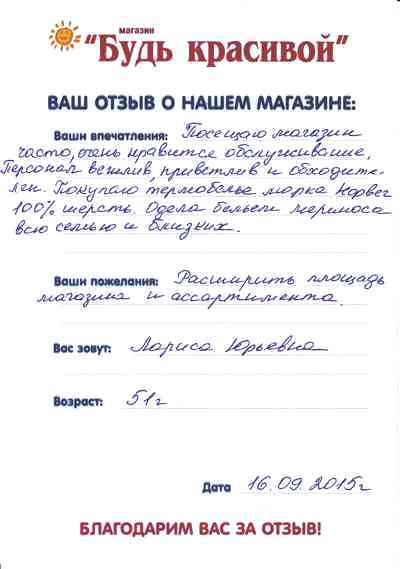 магазин
"Будь красивой"
ВАШ ОТЗЫВ О НАШЕМ МАГАЗИНЕ:
Ваши впечатления: Посещаю магазин
часто, очень нравится обслуживание,
Персонал вежлив, приветлив и обходите-
лен. Покупаю термобелье марка Норвег
100% шерсть. Одела бельем мериноса
всю семью и близких.
Ваши пожелания: Расширить площадь
магазина и ассортимента.
Вас зовут: Лариса Юрьевна
Возраст: 51г
Дата 16.09.2015г
БЛАГОДАРИМ ВАС ЗА ОТЗЫВ!